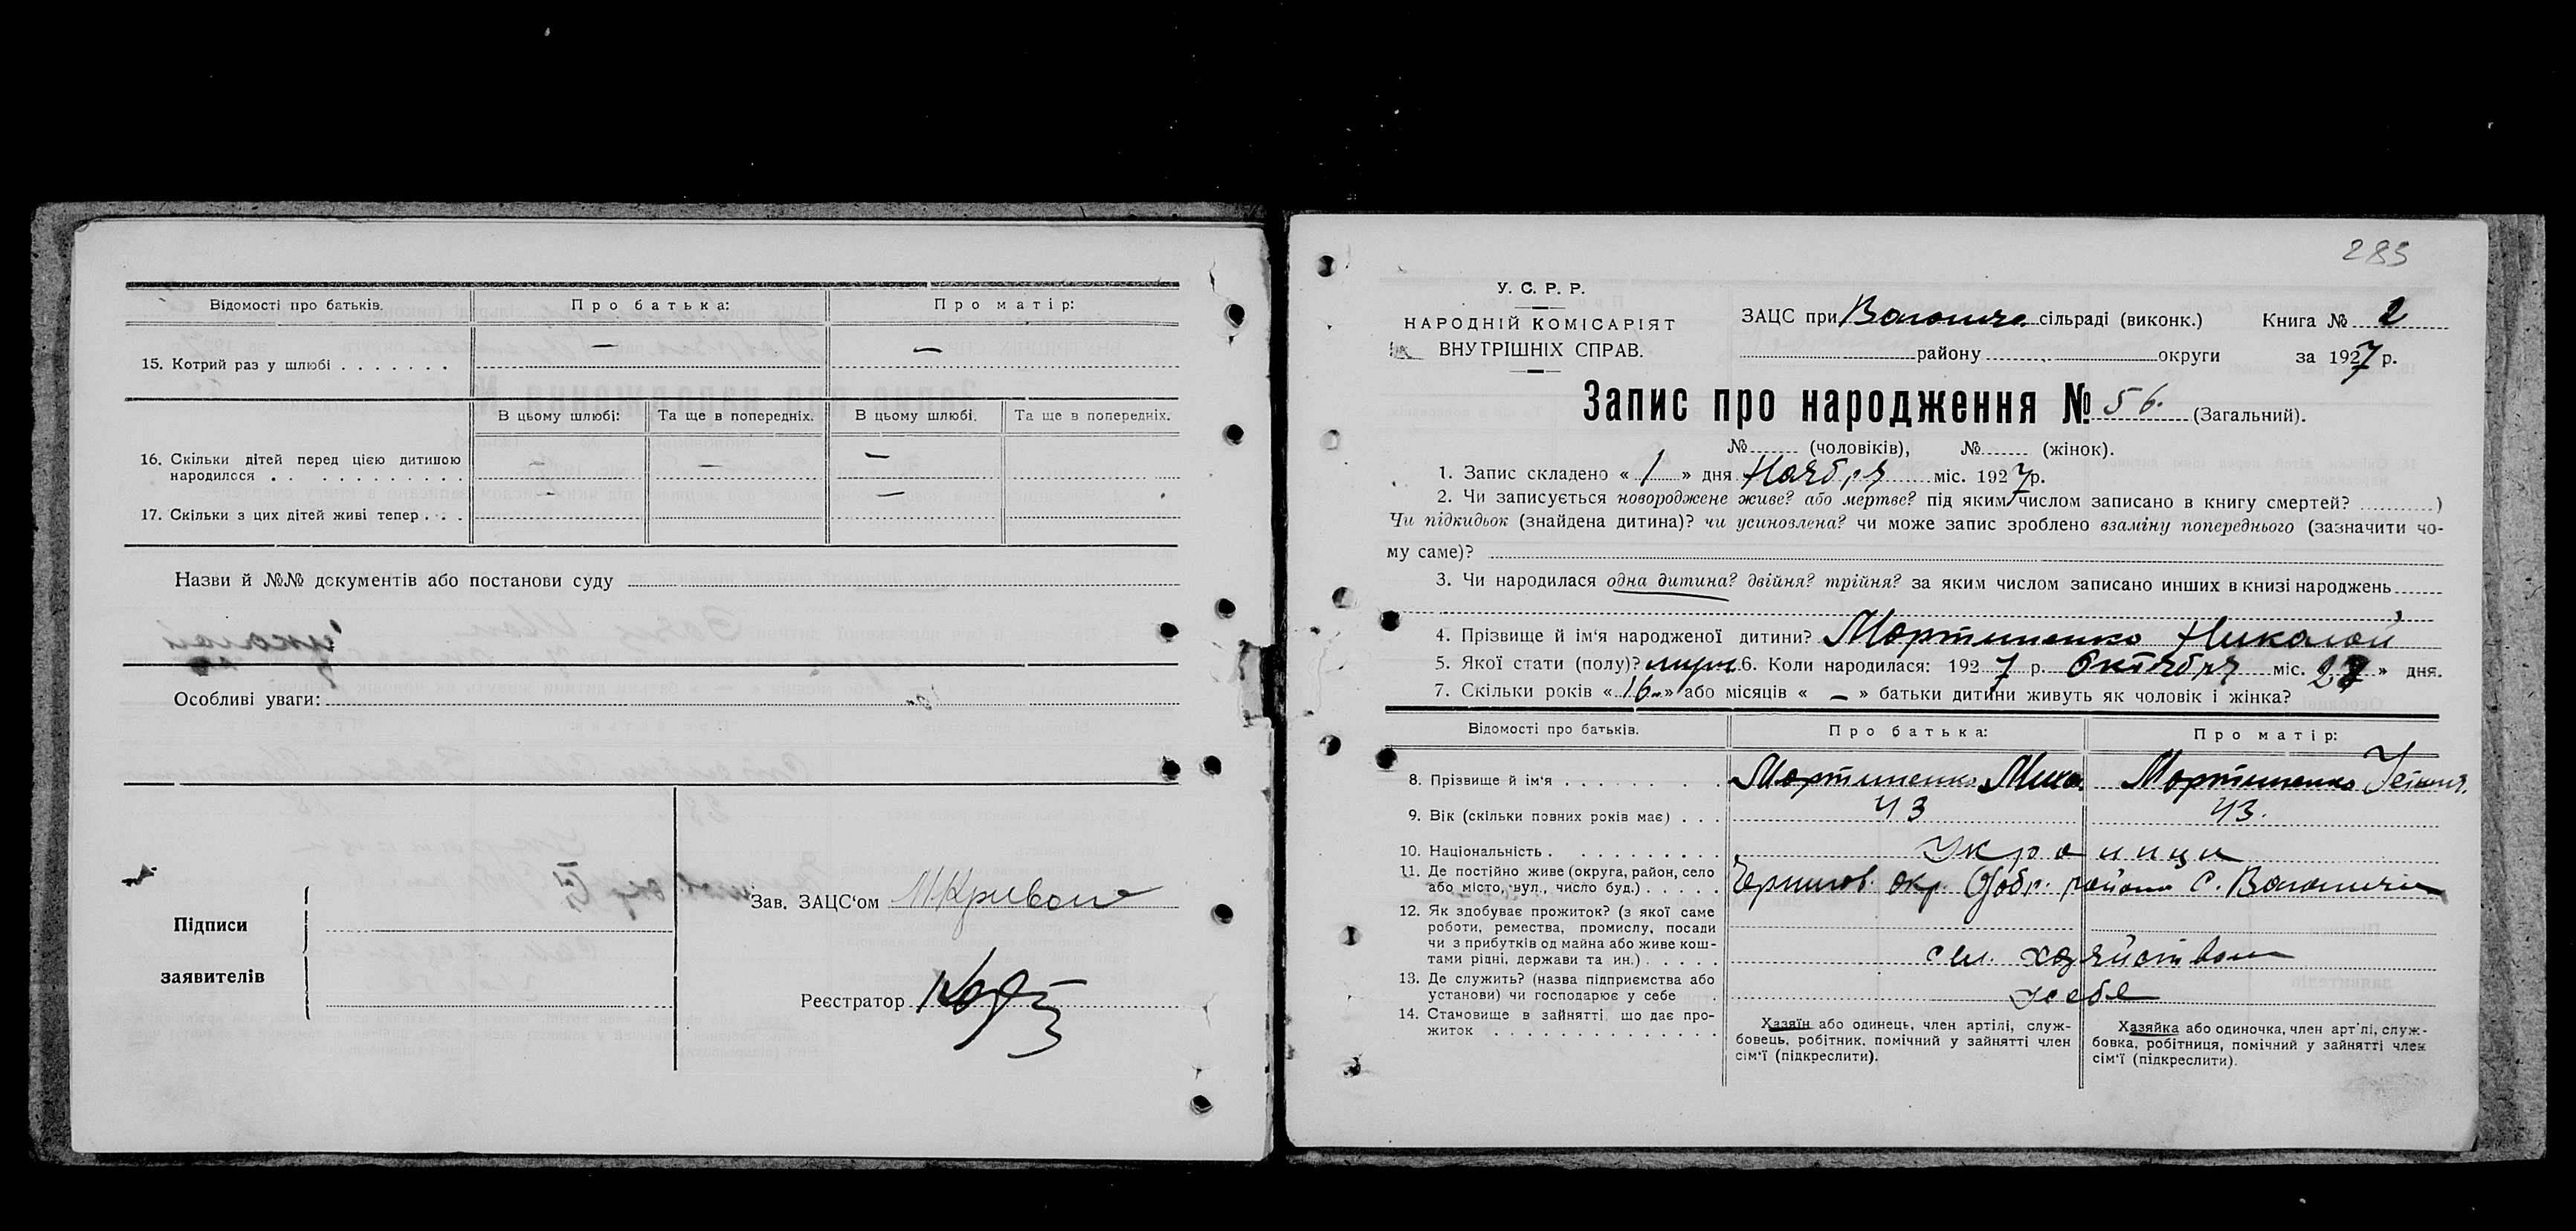 Відомості про батьків. Про батька: Про матір:
15. Котрий раз у шлюбі . . . . . . . — —
В цьому шлюбі: Та ще в попередніх. В цьому шлюбі. Та ще в попередніх.
16. Скільки дітей перед цією дитиною
народилося . . . . . . . . . . . — — —
17. Скільки з цих дітей живі тепер . . . — —
Назви й №№ документів або постанови суду
Особливі уваги:
Підписи
заявителів
Зав. ЗАЦС'ом
Реєстратор
283
У. С. Р. Р.
НАРОДНІЙ КОМІСАРІЯТ
ВНУТРІШНІХ СПРАВ.
ЗАЦС при сільраді (виконк.) Книга № 2
району округи за 1927 р.
Запис про народження № 56. (Загальний).
№ (чоловіків), № (жінок).
1. Запис складено « 1 » дня Ноября міс. 1927 р.
2. Чи записується новороджене живе? або мертве? під яким числом записано в книгу смертей? )
Чи підкидьок (знайдена дитина)? чи усиновлена? чи може запис зроблено взаміну попереднього (зазначити чо-
му саме)?
3. Чи народилася одна дитина? двійня? трійня? за яким числом записано инших в книзі народжень
4. Прізвище й ім'я народженої дитини? Мортиненко Николай
5. Якої стати (полу)? 6. Коли народилася: 1927 р. Октября міс. » дня.
7. Скільки років « 16 » або місяців « — » батьки дитини живуть як чоловік і жінка?
Відомості про батьків. Про батька: Про матір:
8. Прізвище й ім'я . . . . . . . . Мортиненко Мортиненко
9. Вік (скільки повних років має) . . . 43 43.
10. Національність . . . . . . . . . . Украинци
11. Де постійно живе (округа, район, село
або місто, вул., число буд.) . . . . . Чернигов. окр. района с.
12. Як здобуває прожиток? (з якої саме
роботи, ремества, промислу, посади
чи з прибутків од майна або живе кош-
тами рідні, держави та ин.) . . . . . сел. хозяйством
13. Де служить? (назва підприємства або
установи) чи господарює у себе . у себе
14. Становище в зайнятті, що дає про-
житок . . . . . . . . . . . . . .
Хазяїн або одинець, член артілі, служ-
бовець, робітник, помічний у зайнятті член
сім'ї (підкреслити).
Хазяйка або одиночка, член арт'лі, служ-
бовка, робітниця, помічний у зайнятті член
сім'ї (підкреслити).